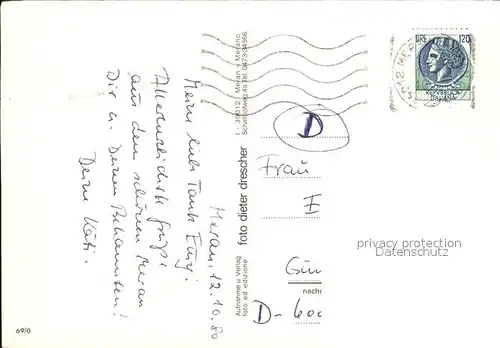 Meran, 12.10.80
Meine liebe Tante
Allerherzlichste Grüße
aus dem schönen Meran
Dir u. Deinen Bekannten!
Deine Käti.
69/0
Aufnahme u. Verlag
foto ed edizione
foto dieter drescher
I - 39012 Meran - Merano
Schafferweg 4a Tel. 0473-34966
LIRE 120
REPVBBLICA
ITALIANA
D
Frau
E
Gün
nache
D-600
privacy protection
Datenschutz